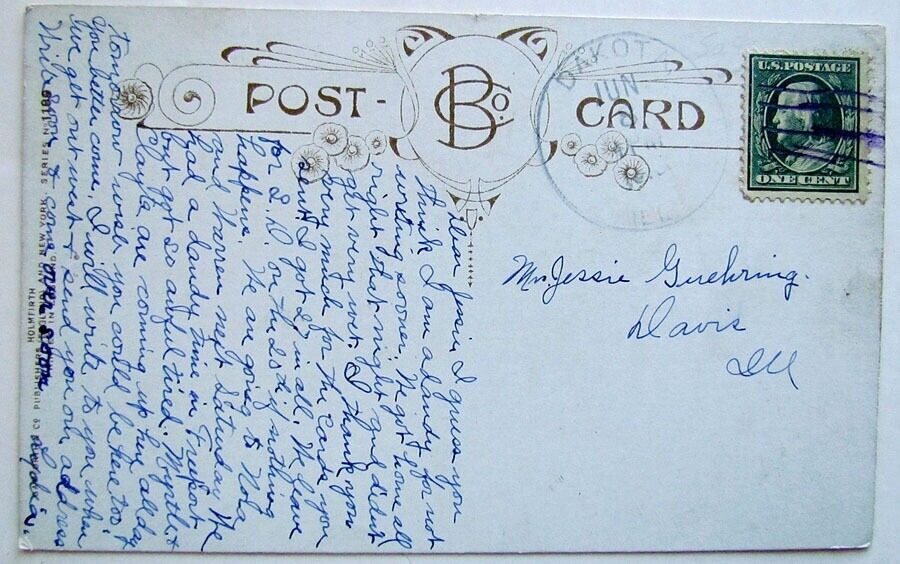 POST-
B Co.
CARD
DAKOT
JUN
U.S. POSTAGE
ONE CENT
Dear Jessie, I guess you
think I am a dandy for not
writing sooner. We got home all
right that night and didn't
get very wet. I thank you
very much for the cards you
sent. I got 27 in all. We leave
for S.D. on the 20 if nothing
happens. We are going to Nola
and Warren next Saturday. We
had a dandy time in Freeport
but got so awful tired. Myrtle &
Clayta are coming up here all day
tomorrow wish you could be here too.
You better come. I will write to you when
we get out west & send you our address
Write soon & come over soon
Mrs Jessie Guehring.
Davis
Ill
HOLMFIRTH
PUBLISHERS AND NEW YORK SERIES N